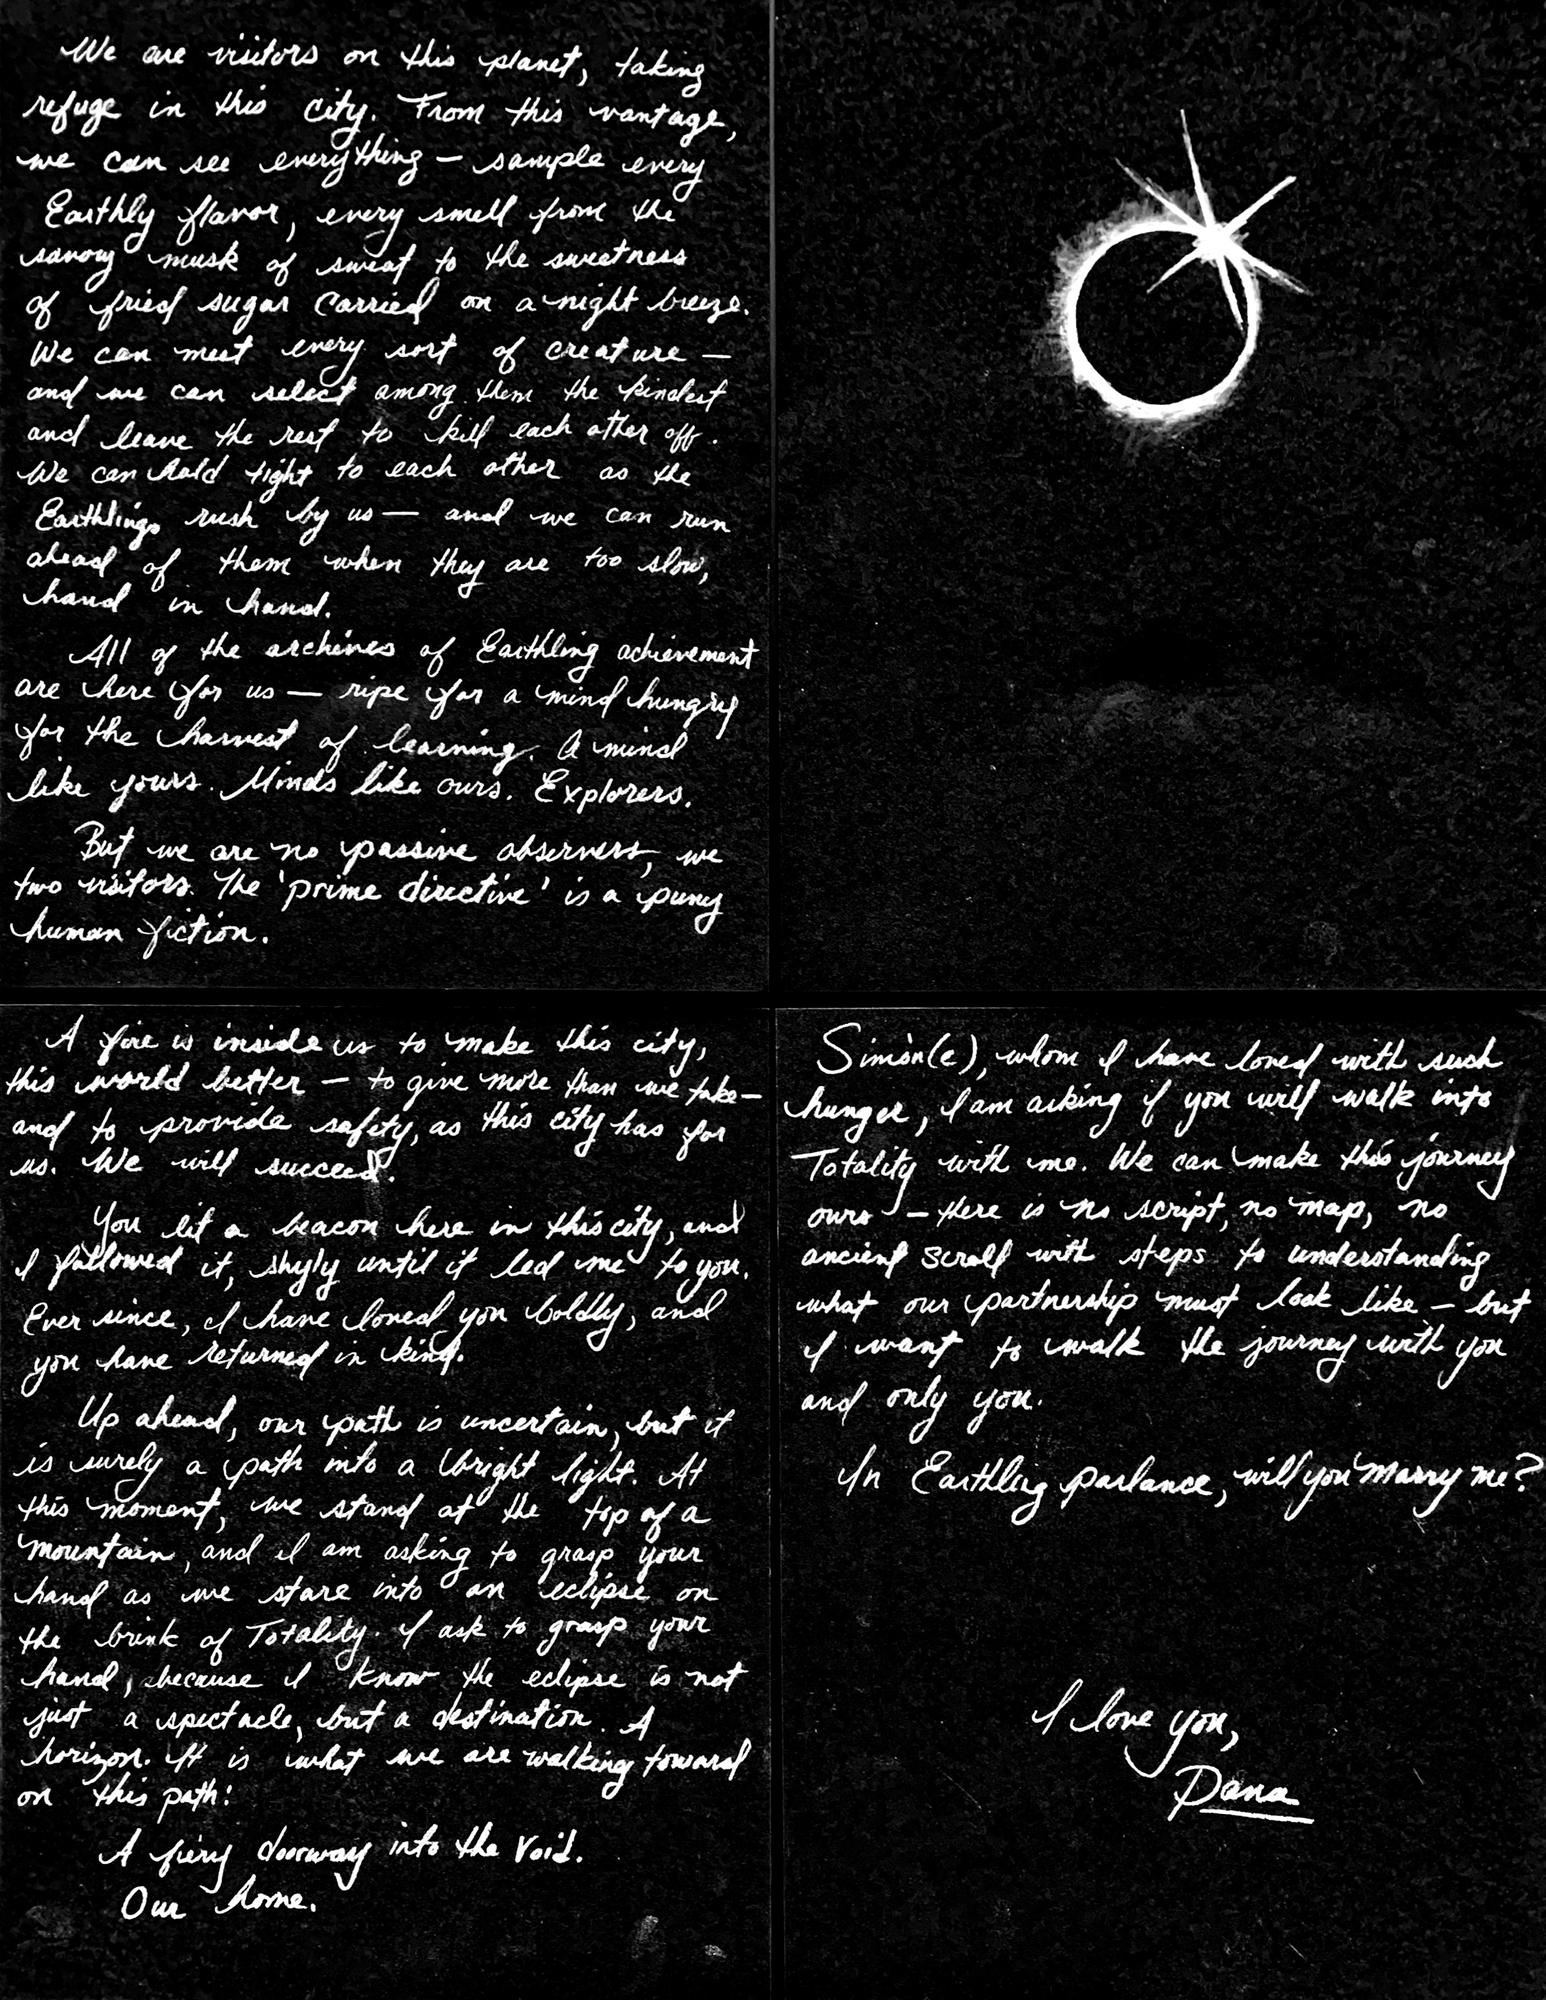 We are visitors on this planet, taking
refuge in this city. From this vantage,
we can see everything — sample every
Earthly flavor, every smell from the
savory musk of sweat to the sweetness
of fried sugar carried on a night breeze.
We can meet every sort of creature —
and we can select among them the kindest
and leave the rest to kill each other off.
We can hold tight to each other as the
Earthlings rush by us — and we can run
ahead of them when they are too slow,
hand in hand.
All of the archives of Earthling achievement
are here for us — ripe for a mind hungry
for the harvest of learning. A mind
like yours. Minds like ours. Explorers.
But we are no passive observers, we
two visitors. The 'prime directive' is a puny
human fiction.
A fire is inside us to make this city,
this world better — to give more than we take —
and to provide safety, as this city has for
us. We will succeed.
You lit a beacon here in this city, and
I followed it, shyly until it led me to you.
Ever since, I have loved you boldly, and
you have returned in kind.
Up ahead, our path is uncertain, but it
is surely a path into a bright light. At
this moment, we stand at the top of a
mountain, and I am asking to grasp your
hand as we stare into an eclipse on
the brink of Totality. I ask to grasp your
hand, because I know the eclipse is not
just a spectacle, but a destination. A
horizon. It is what we are walking toward
on this path:
A fiery doorway into the Void.
Our home.
Simòn(e), whom I have loved with such
hunger, I am asking if you will walk into
Totality with me. We can make this journey
ours — there is no script, no map, no
ancient scroll with steps to understanding
what our partnership must look like — but
I want to walk the journey with you
and only you.
In Earthling parlance, will you marry me?
I love you,
Dana